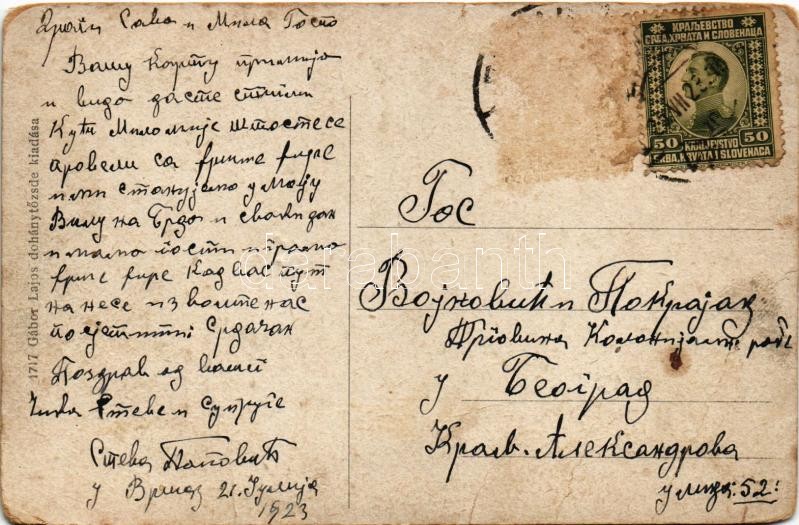 Драги Сава и Мила Госпо
Вашу Карту примио
и видо да сте стигли
Кући Мило ми је што сте се
провели са
и ми станујемо у моју
Вилу на Брдо и сваки дан
имамо гости и правимо
Кад вас пут
на несе изволите нас
посјетити Срдачан
Поздрав од вашег
Чика Стеве и супруге
Стева Поповић
у Вршац 21. Јулија
1923
1717 Gábor Lajos dohánytőzsde kiadása
КРАЉЕВСТВО
СРБА, ХРВАТА И СЛОВЕНАЦА
50 50
KRALJEVSTVO
SRBA, HRVATA I SLOVENACA
Гос
Војновић и Покрајац
Трговина Колонијалне робе
у Београд
Краљ. Александрова
улица: 52:
darabanth